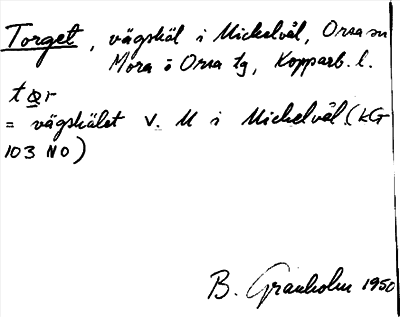 Torget, vägskäl i Mickelvål, Orsa sn
Mora o Orsa tg, Kopparb. l.
tor
= vägskälet V. M i Mickelvål (KG
103 NO)
B. Granholm 1950